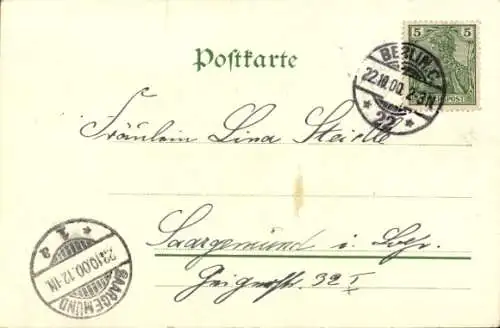 Postkarte
5
REICHSPOST
BERLIN.C.
22.10.00. 2-3N.
* 22 *
Fräulein Lina
Saargemünd i. Lothr.
32 I
* 1 a
23.10.00. 12-1N.
SAARGEMÜND